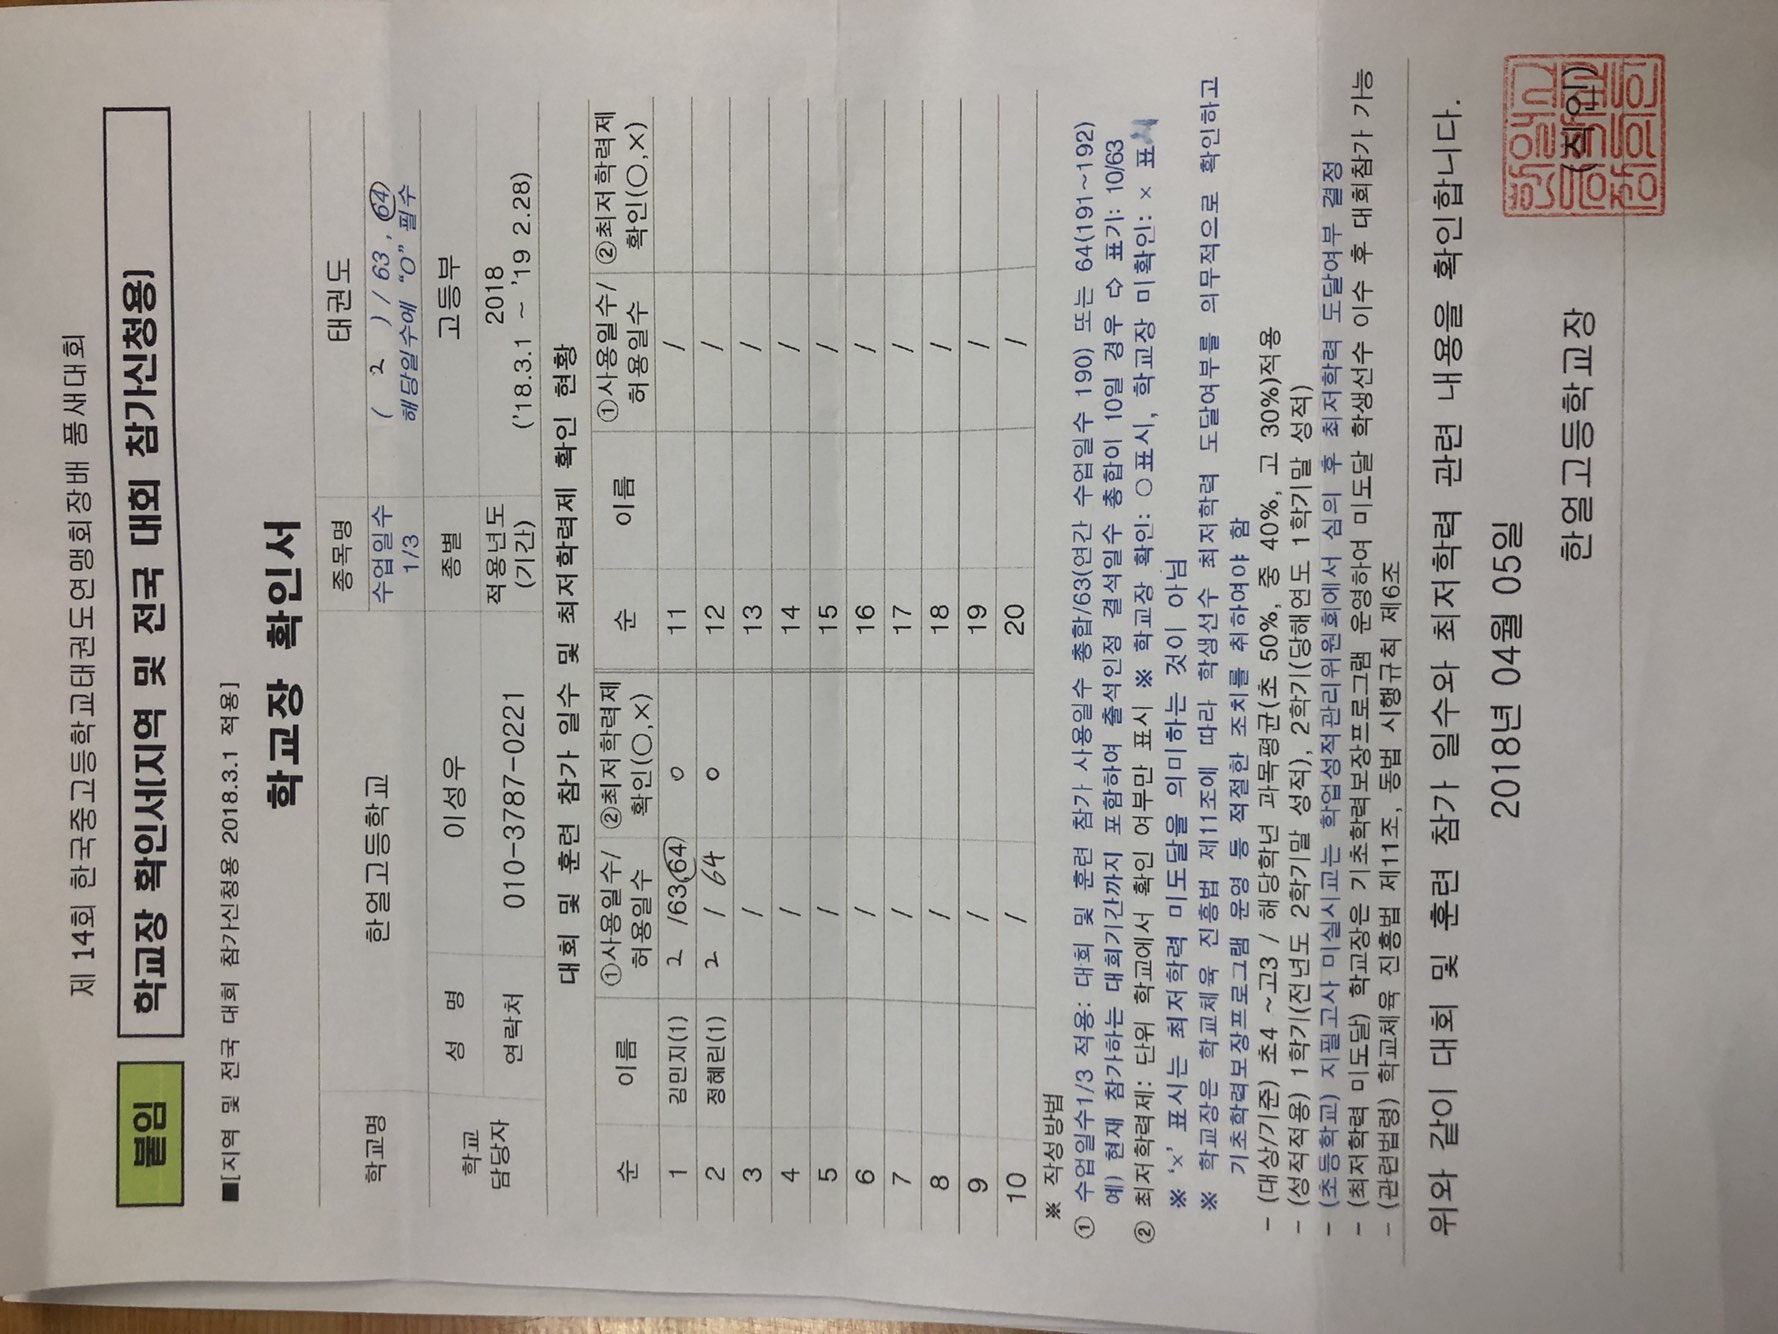 제 14회 한국중고등학교태권도연맹회장배 품새대회
붙임 학교장 확인서[지역 및 전국 대회 참가신청용]
■[지역 및 전국 대회 참가신청용 2018.3.1 적용]
학교장 확인서
학교명 한얼고등학교 종목명 태권도
수업일수 1/3 ( 2 ) / 63 , 64 해당일수에 "O" 필수
학교 담당자 성 명 이성우 종별 고등부
연락처 010-3787-0221 적용년도 (기간) 2018 ('18.3.1 ~ '19 2.28)
대회 및 훈련 참가 일수 및 최저학력제 확인 현황
순 이름 ①사용일수/허용일수 ②최저학력제 확인(○,×) 순 이름 ①사용일수/허용일수 ②최저학력제 확인(○,×)
1 김민지(1) 2 /63(64) o 11 /
2 정혜린(1) 2 / 64 o 12 /
3 / 13 /
4 / 14 /
5 / 15 /
6 / 16 /
7 / 17 /
8 / 18 /
9 / 19 /
10 / 20 /
※ 작성방법
① 수업일수1/3 적용: 대회 및 훈련 참가 사용일수 총합/63(연간 수업일수 190) 또는 64(191~192)
예) 현재 참가하는 대회기간까지 포함하여 출석인정 결석일수 총합이 10일 경우 ⇨ 표기: 10/63
② 최저학력제: 단위 학교에서 확인 여부만 표시 ※ 학교장 확인: ○ 표시, 학교장 미확인: × 표시
※ '×' 표시는 최저학력 미도달을 의미하는 것이 아님
※ 학교장은 학교체육 진흥법 제11조에 따라 학생선수 최저학력 도달여부를 의무적으로 확인하고
기초학력보장프로그램 운영 등 적절한 조치를 취하여야 함
- (대상/기준) 초4 ~고3 / 해당학년 과목평균(초 50%, 중 40%, 고 30%)적용
- (성적적용) 1학기(전년도 2학기말 성적), 2학기(당해연도 1학기말 성적)
- (초등학교) 지필고사 미실시교는 학업성적관리위원회에서 심의 후 최저학력 도달여부 결정
- (최저학력 미도달) 학교장은 기초학력보장프로그램 운영하여 미도달 학생선수 이수 후 대회참가 가능
- (관련법령) 학교체육 진흥법 제11조, 동법 시행규칙 제6조
위와 같이 대회 및 훈련 참가 일수와 최저학력 관련 내용을 확인합니다.
2018년 04월 05일
한얼고등학교장 (직인)